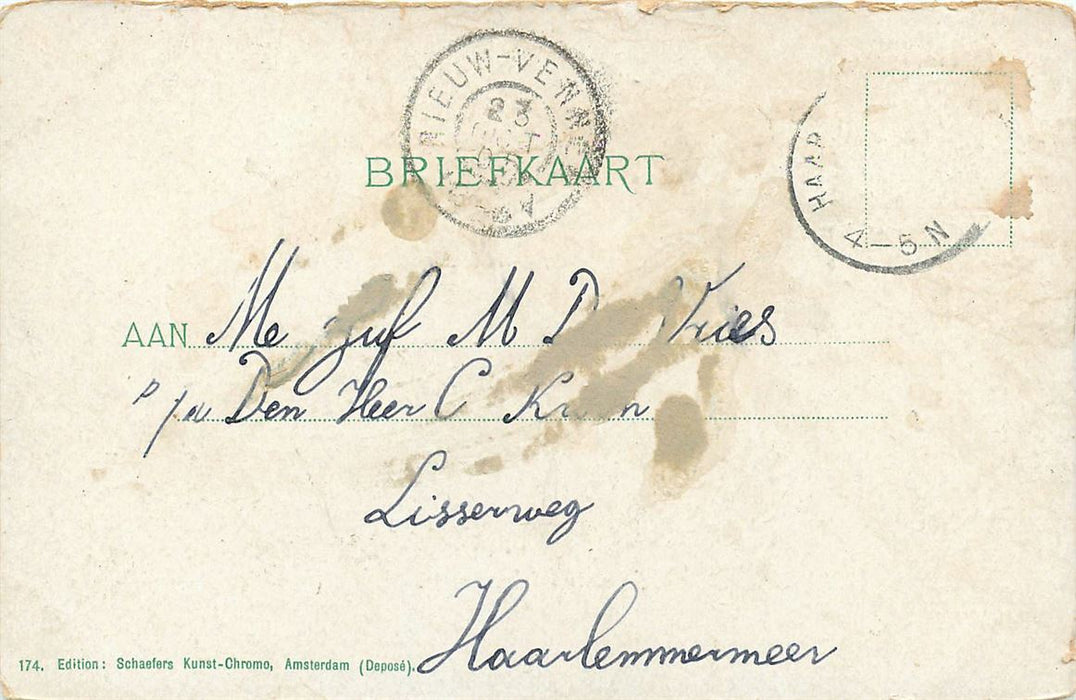 NIEUW-VENNEP
23
OCT
BRIEFKAART
HAAR
4-5N
AAN Mejuf M D Vries
p/a Den Heer C
Lisserweg
Haarlemmermeer
174. Edition: Schaefers Kunst-Chromo, Amsterdam (Deposé).